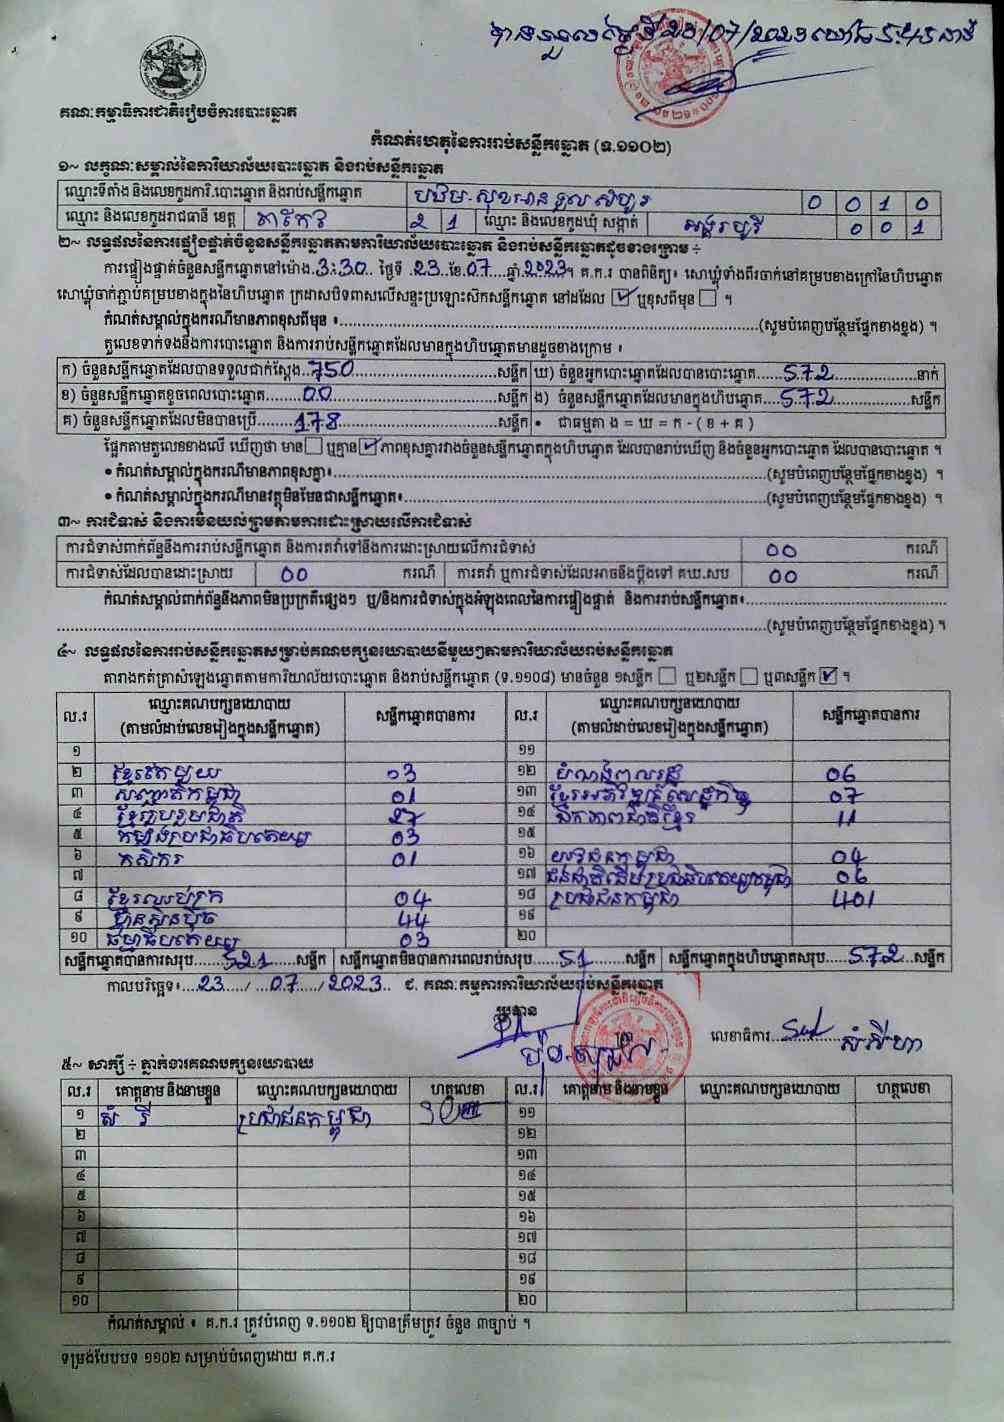 បានទទួលថ្ងៃទី 23/07/2023 ម៉ោង 5:45 នាទី
គណៈកម្មាធិការជាតិរៀបចំការបោះឆ្នោត
កំណត់ហេតុនៃការរាប់សន្លឹកឆ្នោត (ទ.១១០២)
១~ លក្ខណៈសម្គាល់នៃការិយាល័យបោះឆ្នោត និងរាប់សន្លឹកឆ្នោត
ឈ្មោះទីតាំង និងលេខកូដការិ.បោះឆ្នោត និងរាប់សន្លឹកឆ្នោត 0 0 1 0
ឈ្មោះ និងលេខកូដរាជធានី ខេត្ត តាកែវ 2 1 ឈ្មោះ និងលេខកូដឃុំ សង្កាត់ អង្គរបូរី 0 0 1
២~ លទ្ធផលនៃការផ្ទៀងផ្ទាត់ចំនួនសន្លឹកឆ្នោតតាមការិយាល័យបោះឆ្នោត និងរាប់សន្លឹកឆ្នោតដូចខាងក្រោម ÷
ការផ្ទៀងផ្ទាត់ចំនួនសន្លឹកឆ្នោតនៅម៉ោង.3:30.. ថ្ងៃទី .23..ខែ.07....ឆ្នាំ.2023.។ គ.ក.រ បានពិនិត្យ៖ សោឃ្លុំទាំងពីរចាក់នៅគម្របខាងក្រៅនៃហិបឆ្នោត
សោឃ្លុំចាក់ភ្ជាប់គម្របខាងក្នុងនៃហិបឆ្នោត ក្រដាសបិទពាសលើសន្ទះប្រឡោះសិកសន្លឹកឆ្នោត នៅដដែល ☑ ឬខុសពីមុន ☐ ។
កំណត់សម្គាល់ក្នុងករណីមានភាពខុសពីមុន ៖..........(សូមបំពេញបន្ថែមផ្នែកខាងខ្នង) ។
តួលេខទាក់ទងនឹងការបោះឆ្នោត និងការរាប់សន្លឹកឆ្នោតដែលមានក្នុងហិបឆ្នោតមានដូចខាងក្រោម ៖
ក) ចំនួនសន្លឹកឆ្នោតដែលបានទទួលជាក់ស្តែង..750..........សន្លឹក ឃ) ចំនួនអ្នកបោះឆ្នោតដែលបានបោះឆ្នោត.....572..........នាក់
ខ) ចំនួនសន្លឹកឆ្នោតខូចពេលបោះឆ្នោត.......00..........សន្លឹក ង) ចំនួនសន្លឹកឆ្នោតដែលមានក្នុងហិបឆ្នោត...572..........សន្លឹក
គ) ចំនួនសន្លឹកឆ្នោតដែលមិនបានប្រើ.......178..........សន្លឹក • ជាធម្មតា ង = ឃ = ក - ( ខ + គ )
ផ្អែកតាមតួលេខខាងលើ ឃើញថា មាន ☐ ឬគ្មាន ☑ ភាពខុសគ្នារវាងចំនួនសន្លឹកឆ្នោតក្នុងហិបឆ្នោត ដែលបានរាប់ឃើញ និងចំនួនអ្នកបោះឆ្នោត ដែលបានបោះឆ្នោត ។
• កំណត់សម្គាល់ក្នុងករណីមានភាពខុសគ្នា៖..........(សូមបំពេញបន្ថែមផ្នែកខាងខ្នង) ។
• កំណត់សម្គាល់ក្នុងករណីមានវត្ថុមិនមែនជាសន្លឹកឆ្នោត៖..........(សូមបំពេញបន្ថែមផ្នែកខាងខ្នង) ។
៣~ ការជំទាស់ និងការមិនយល់ព្រមតាមការដោះស្រាយលើការជំទាស់
ការជំទាស់ពាក់ព័ន្ធនឹងការរាប់សន្លឹកឆ្នោត និងការតវ៉ាទៅនឹងការដោះស្រាយលើការជំទាស់ 00 ករណី
ការជំទាស់ដែលបានដោះស្រាយ 00 ករណី ការតវ៉ា ឬការជំទាស់ដែលអាចនឹងប្តឹងទៅ គឃ.សប 00 ករណី
កំណត់សម្គាល់ពាក់ព័ន្ធនឹងភាពមិនប្រក្រតីផ្សេងៗ ឬ/និងការជំទាស់ក្នុងអំឡុងពេលនៃការផ្ទៀងផ្ទាត់ និងការរាប់សន្លឹកឆ្នោត៖..........
..........(សូមបំពេញបន្ថែមផ្នែកខាងខ្នង) ។
៤~ លទ្ធផលនៃការរាប់សន្លឹកឆ្នោតសម្រាប់គណបក្សនយោបាយនីមួយៗតាមការិយាល័យរាប់សន្លឹកឆ្នោត
តារាងកត់ត្រាសំឡេងឆ្នោតតាមការិយាល័យបោះឆ្នោត និងរាប់សន្លឹកឆ្នោត (ទ.១១០៨) មានចំនួន ១សន្លឹក ☐ ឬ២សន្លឹក ☐ ឬ៣សន្លឹក ☑ ។
ល.រ ឈ្មោះគណបក្សនយោបាយ (តាមលំដាប់លេខរៀងក្នុងសន្លឹកឆ្នោត) សន្លឹកឆ្នោតបានការ ល.រ ឈ្មោះគណបក្សនយោបាយ (តាមលំដាប់លេខរៀងក្នុងសន្លឹកឆ្នោត) សន្លឹកឆ្នោតបានការ
១ ១១
២ ខ្មែរតែមួយ 03 ១២ បំណងពលរដ្ឋ 06
៣ សញ្ជាតិកម្ពុជា 01 ១៣ ខ្មែរអភិវឌ្ឍន៍សេដ្ឋកិច្ច 07
៤ ខ្មែររួបរួមជាតិ 27 ១៤ ឯកភាពជាតិខ្មែរ 11
៥ កម្លាំងប្រជាធិបតេយ្យ 03 ១៥
៦ កសិករ 01 ១៦ យុវជនកម្ពុជា 04
៧ ១៧ ជនជាតិដើមប្រជាធិបតេយ្យកម្ពុជា 06
៨ ខ្មែរឈប់ក្រ 04 ១៨ ប្រជាជនកម្ពុជា 401
៩ ហ្វ៊ុនស៊ិនប៉ិច 44 ១៩
១០ ធម្មាធិបតេយ្យ 03 ២០
សន្លឹកឆ្នោតបានការសរុប.....521......សន្លឹក សន្លឹកឆ្នោតមិនបានការពេលរាប់សរុប.....51......សន្លឹក សន្លឹកឆ្នោតក្នុងហិបឆ្នោតសរុប.....572..សន្លឹក
កាលបរិច្ឆេទ៖...23...../...07...../2023.. ជ. គណៈកម្មការការិយាល័យរាប់សន្លឹកឆ្នោត
ប្រធាន
លេខាធិការ.......... សំ សីហា
៥~ សាក្សី ÷ ភ្នាក់ងារគណបក្សនយោបាយ
ល.រ គោត្តនាម និងនាមខ្លួន ឈ្មោះគណបក្សនយោបាយ ហត្ថលេខា ល.រ គោត្តនាម និងនាមខ្លួន ឈ្មោះគណបក្សនយោបាយ ហត្ថលេខា
១ សំ រី ប្រជាជនកម្ពុជា ១១
២ ១២
៣ ១៣
៤ ១៤
៥ ១៥
៦ ១៦
៧ ១៧
៨ ១៨
៩ ១៩
១០ ២០
កំណត់សម្គាល់ ៖ គ.ក.រ ត្រូវបំពេញ ទ.១១០២ ឱ្យបានត្រឹមត្រូវ ចំនួន ៣ច្បាប់ ។
ទម្រង់បែបបទ ១១០២ សម្រាប់បំពេញដោយ គ.ក.រ